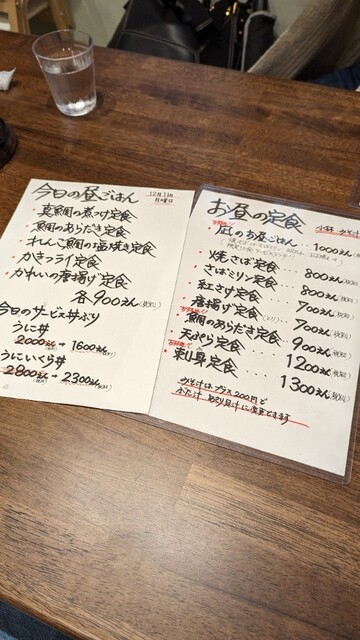 今日の昼ごはん
12月11日
月曜日
・真鯛の煮つけ定食
・鯛のあらだき定食
・れんこ鯛の塩焼き定食
・かきフライ定食
・かれいの唐揚げ定食
各900えん(税込)
今日のサービス丼ぶり
うに丼
2000えん→1600えん(税込)
うにいくら丼
2800えん→2300えん(税込)
お昼の定食
小鉢
・凪のお昼ごはん・・・1000えん(税込)
・焼さば定食・・・・800えん(税込)
・さばミリン定食・・・800えん(税込)
・紅さけ定食・・・・700えん(税込)
・唐揚げ定食・・・700えん(税込)
・鯛のあらだき定食・・・900えん(税込)
・天ぷら定食・・・・1200えん(税込)
・刺身定食・・・・1300えん(税込)
みそ汁はプラス200円で